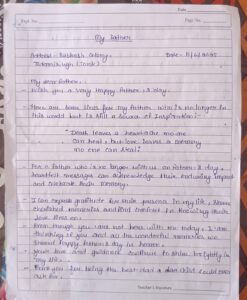 Date
Page No.
My Father
Address- Subhash Colony,
Date - 11/6/2025
My dear father,
- Wish you a very happy father's day.
- Here are some lines for my father who is no longer in
this world but is still a source of inspiration:-
"Death leaves a heartache no one
can heal, but love leaves a memory
no one can steal."
- For a father who is no longer with us on father's day,
heartfelt messages can acknowledge their enduring impact
and celebrate their memory.
- I can express gratitude for their presence in my life, share
cherished memories and find comfort in knowing their
love lives on.
- Even though you are not here with me today, I am
thinking of you and all the wonderful memories we
shared happy father's day in heaven.
- Your love and guidance continue to shine brightly in
my life.
- Thank you for being the best dad a child could ever
ask for.
Teacher's Signature